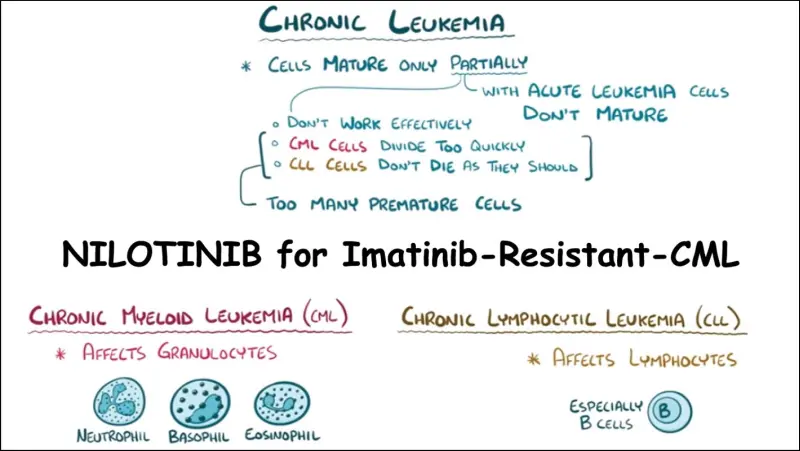 CHRONIC LEUKEMIA
* CELLS MATURE ONLY PARTIALLY
WITH ACUTE LEUKEMIA CELLS
DON'T MATURE
DON'T WORK EFFECTIVELY
CML CELLS DIVIDE TOO QUICKLY
CLL CELLS DON'T DIE AS THEY SHOULD
TOO MANY PREMATURE CELLS
NILOTINIB for Imatinib-Resistant-CML
CHRONIC MYELOID LEUKEMIA (CML)
* AFFECTS GRANULOCYTES
NEUTROPHIL BASOPHIL EOSINOPHIL
CHRONIC LYMPHOCYTIC LEUKEMIA (CLL)
* AFFECTS LYMPHOCYTES
ESPECIALLY
B CELLS
B